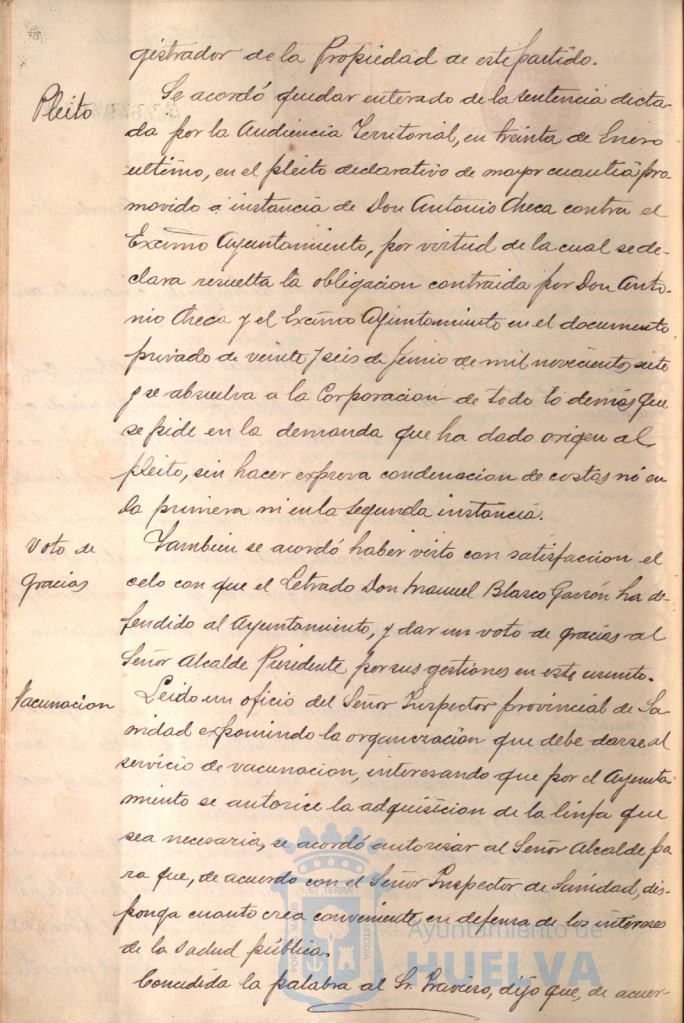 gistrador de la Propiedad de este partido.
Pleito
Se acordó quedar enterado de la sentencia dicta-
da por la Audiencia Territorial, en treinta de Enero
ultimo, en el pleito declarativo de mayor cuantía pro-
movido a instancia de Don Antonio Checa contra el
Excmo Ayuntamiento, por virtud de la cual se de-
clara resuelta la obligacion contraida por Don Anto-
nio Checa y el Excmo Ayuntamiento en el documento
privado de veinte y seis de Junio de mil novecientos siete
y se absuelva a la Corporacion de todo lo demás que
se pide en la demanda que ha dado origen al
pleito, sin hacer expresa condenacion de costas ni en
la primera ni en la segunda instancia.
Voto de
gracias
Tambien se acordó haber visto con satisfaccion el
celo con que el Letrado Don Manuel Blasco Garzón ha de-
fendido al Ayuntamiento, y dar un voto de gracias al
Señor Alcalde Presidente por sus gestiones en este asunto.
Vacunacion
Leido un oficio del Señor Inspector provincial de Sa-
nidad exponiendo la organización que debe darse al
servicio de vacunacion, interesando que por el Ayunta-
miento se autorice la adquisicion de la linfa que
sea necesaria, se acordó autorizar al Señor Alcalde pa
ra que, de acuerdo con el Señor Inspector de Sanidad, dis-
ponga cuanto crea conveniente en defensa de los intereses
de la salud pública.
Concedida la palabra al Sr. , dijo que, de acuer-
PORTUS MARIS
ET TERRAE
CUSTODIA
Ayuntamiento de
HUELVA